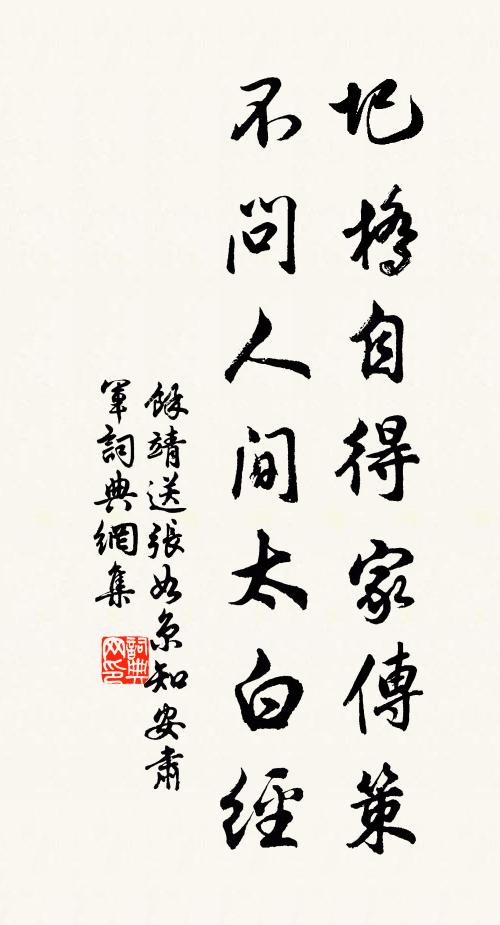 圯橋自得家傳策
不問人間太白經
餘靖送張如京知安肅
軍詞典網集
詞典
网印